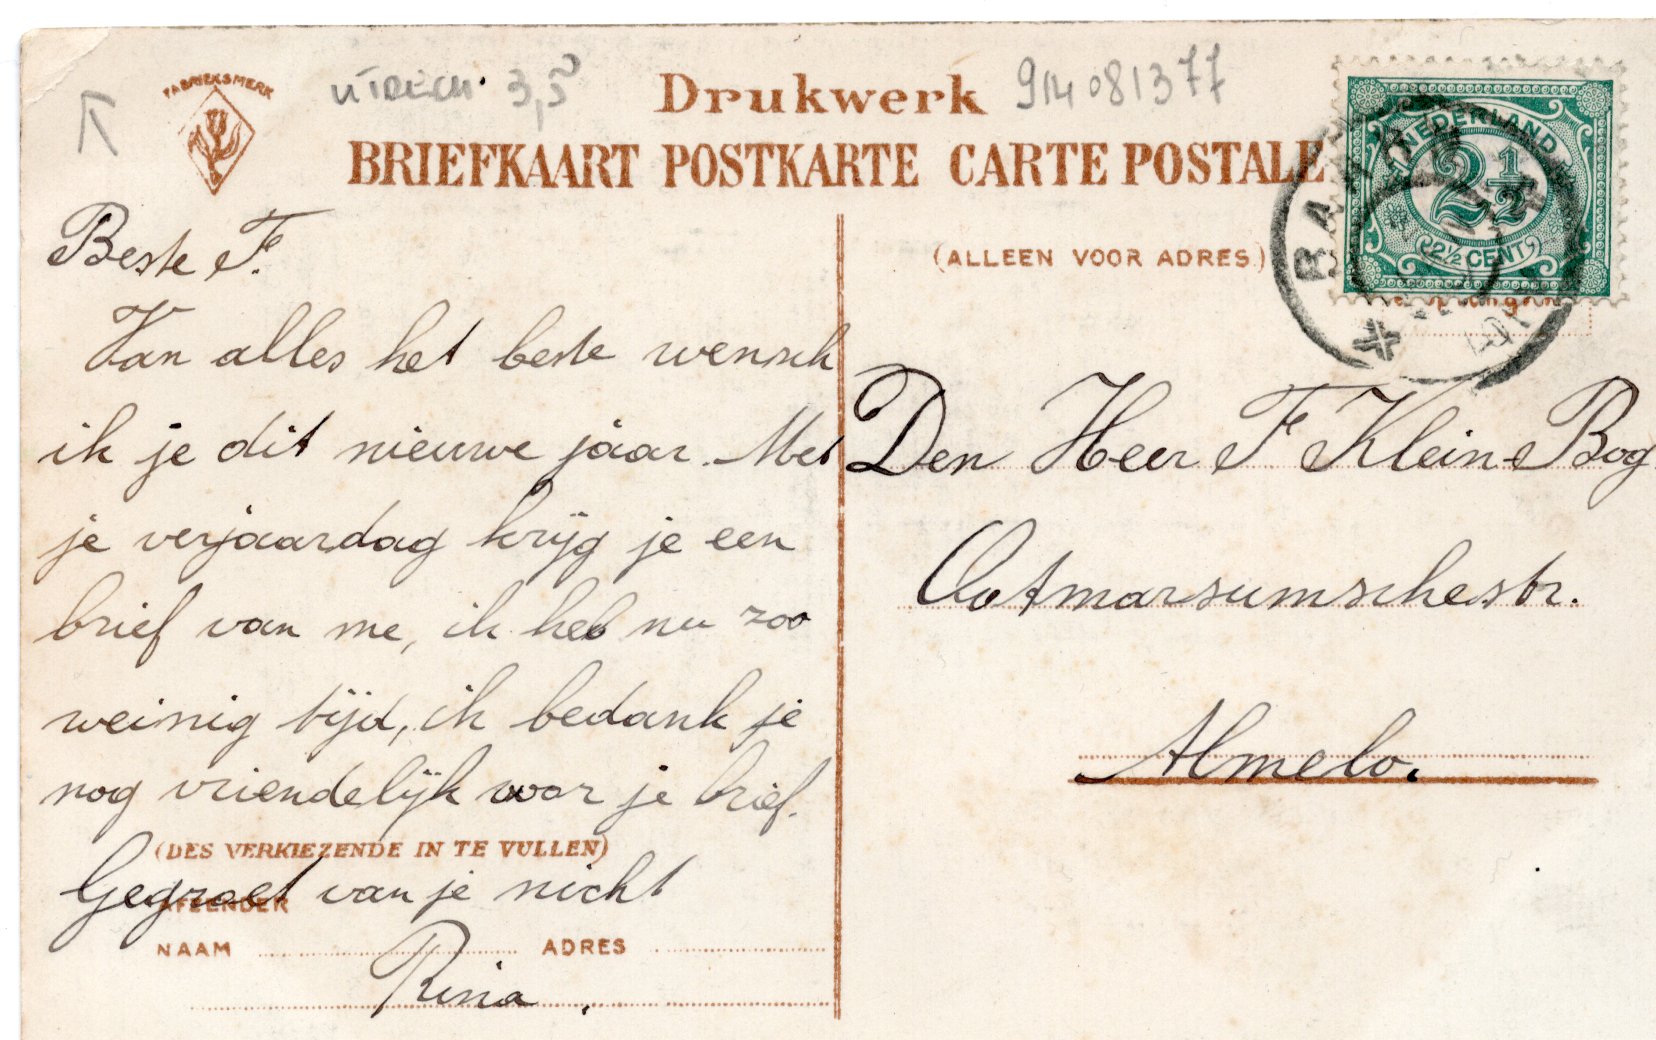 FABRIEKSMERK
UTRECH 3,5
Drukwerk
914081377
BRIEFKAART POSTKARTE CARTE POSTALE
NEDERLAND
2½
2½ CENT
BAARN
(ALLEEN VOOR ADRES.)
Beste F.
Van alles het beste wensch
ik je dit nieuwe jaar. Met
je verjaardag krijg je een
brief van me, ik heb nu zoo
weinig tijd, ik bedank je
nog vriendelijk voor je brief.
(DES VERKIEZENDE IN TE VULLEN)
Gegroet van je nicht
AFZENDER
NAAM ADRES
Rina.
Den Heer F Klein-Bog.
Ootmarsumschestr.
Almelo.